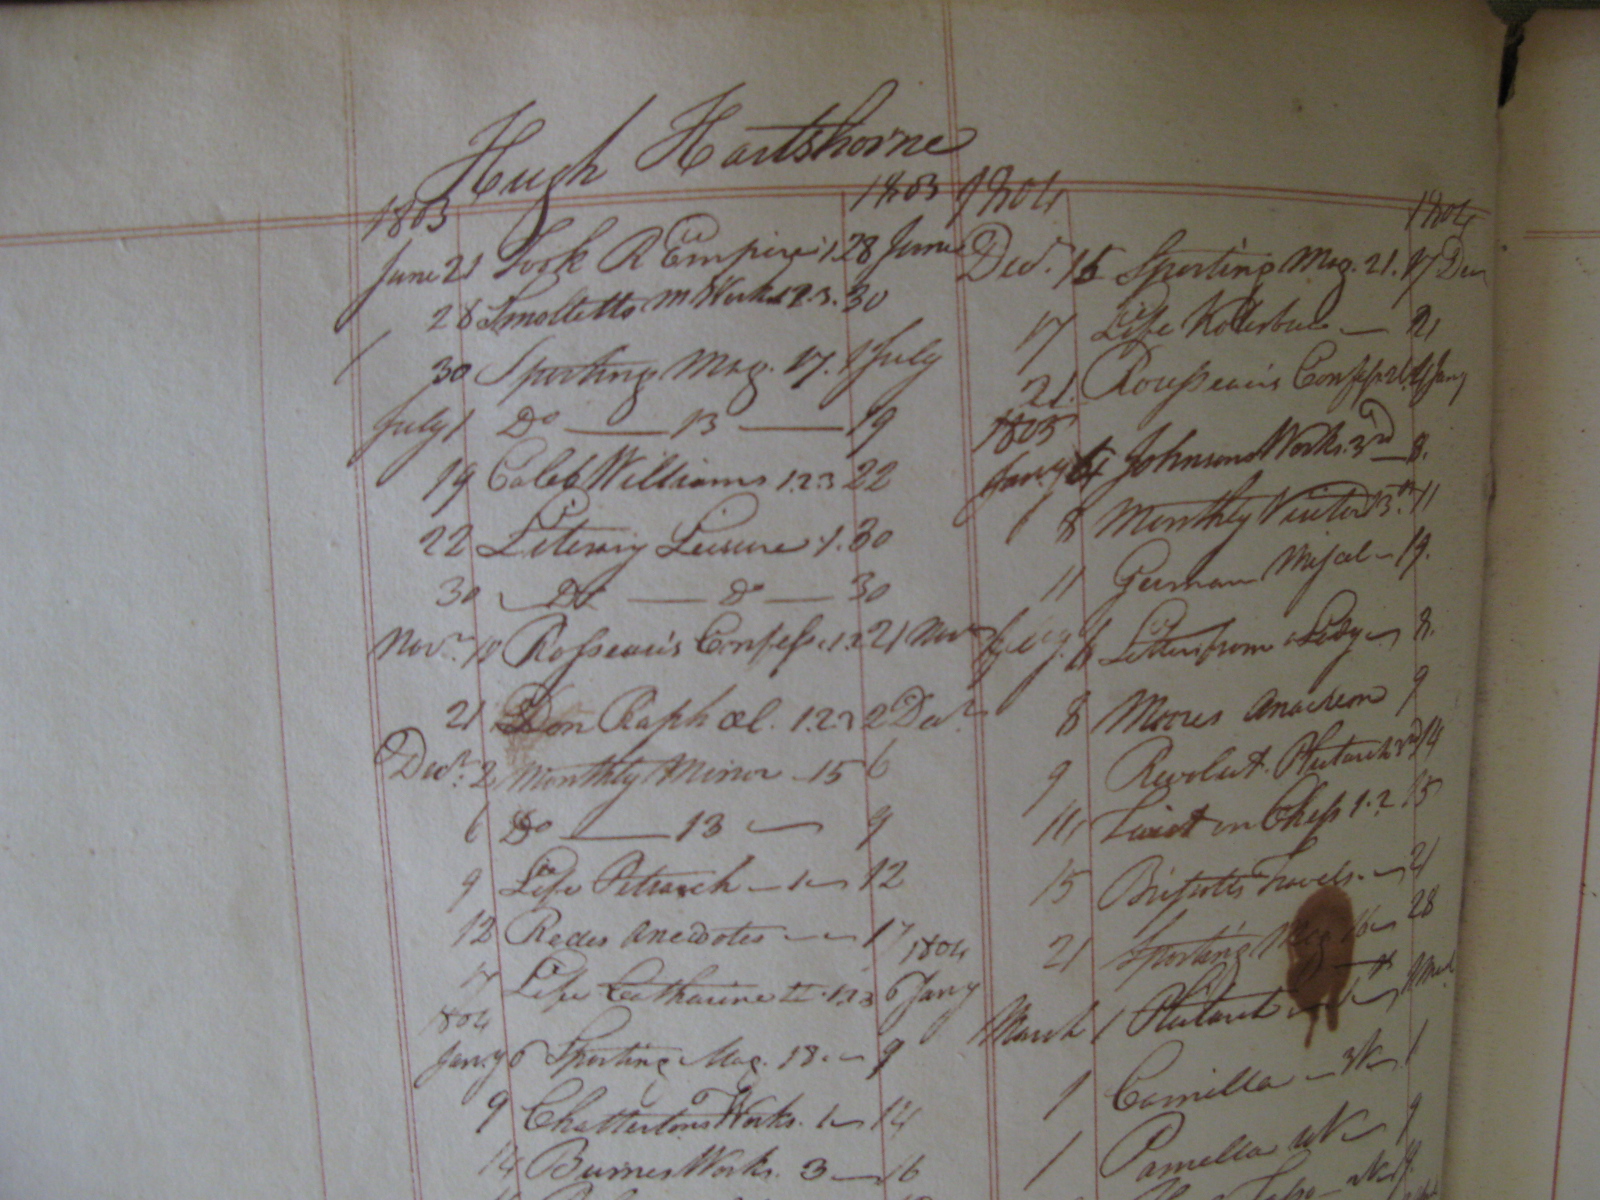 Hugh Hartshorne
1803 1803
June 21 Took R Empire 1. 28 June
28 Smolletts M Works 1.2.3. 30
30 Sporting Mag. 17. 1 July
July 1 Do — 13 — 19
19 Caleb Williams 1.2.3 22
22 Literary Leisure 1. 30
30 Do — Do — 30
Novr. 10 Rosseau's Confess. 1.2. 21 Novr
21 Don Raphael. 1.2.3 2 Decr
Decr. 2 Monthly Mirror 15 6
6 Do — 13 — 9
9 Life Petrarch — 1 — 12
12 Redes anecdotes — 17
1804
17 Life Catharine II. 1.2.3 6 Jany
1804
Jany 6 Sporting Mag. 18. — 9
9 Chattertons Works. 1 — 14
14 Burnes Works. 3 — 16
1804 1804
Decr. 15 Sporting Mag. 21. 17 Decr
17 Life Kotzebue — 21
21. Rousseau's Confess. Jany
1805
Jany 4 Johnsons Works. 3rd — 8.
8 Monthly Visitor 13th. 11
11 German Miscel — 19.
6 Letters from a Lady — 8.
8 Moores Anacreon 9
9 Revolut. Plutarch 3rd 14
14 Twist on Chess 1.2 15
15 Brissots Travels. — 21
21 Sporting Mag 16 — 28
March 1 Plutarch
1 Camilla — 1
1 Pamella — 9